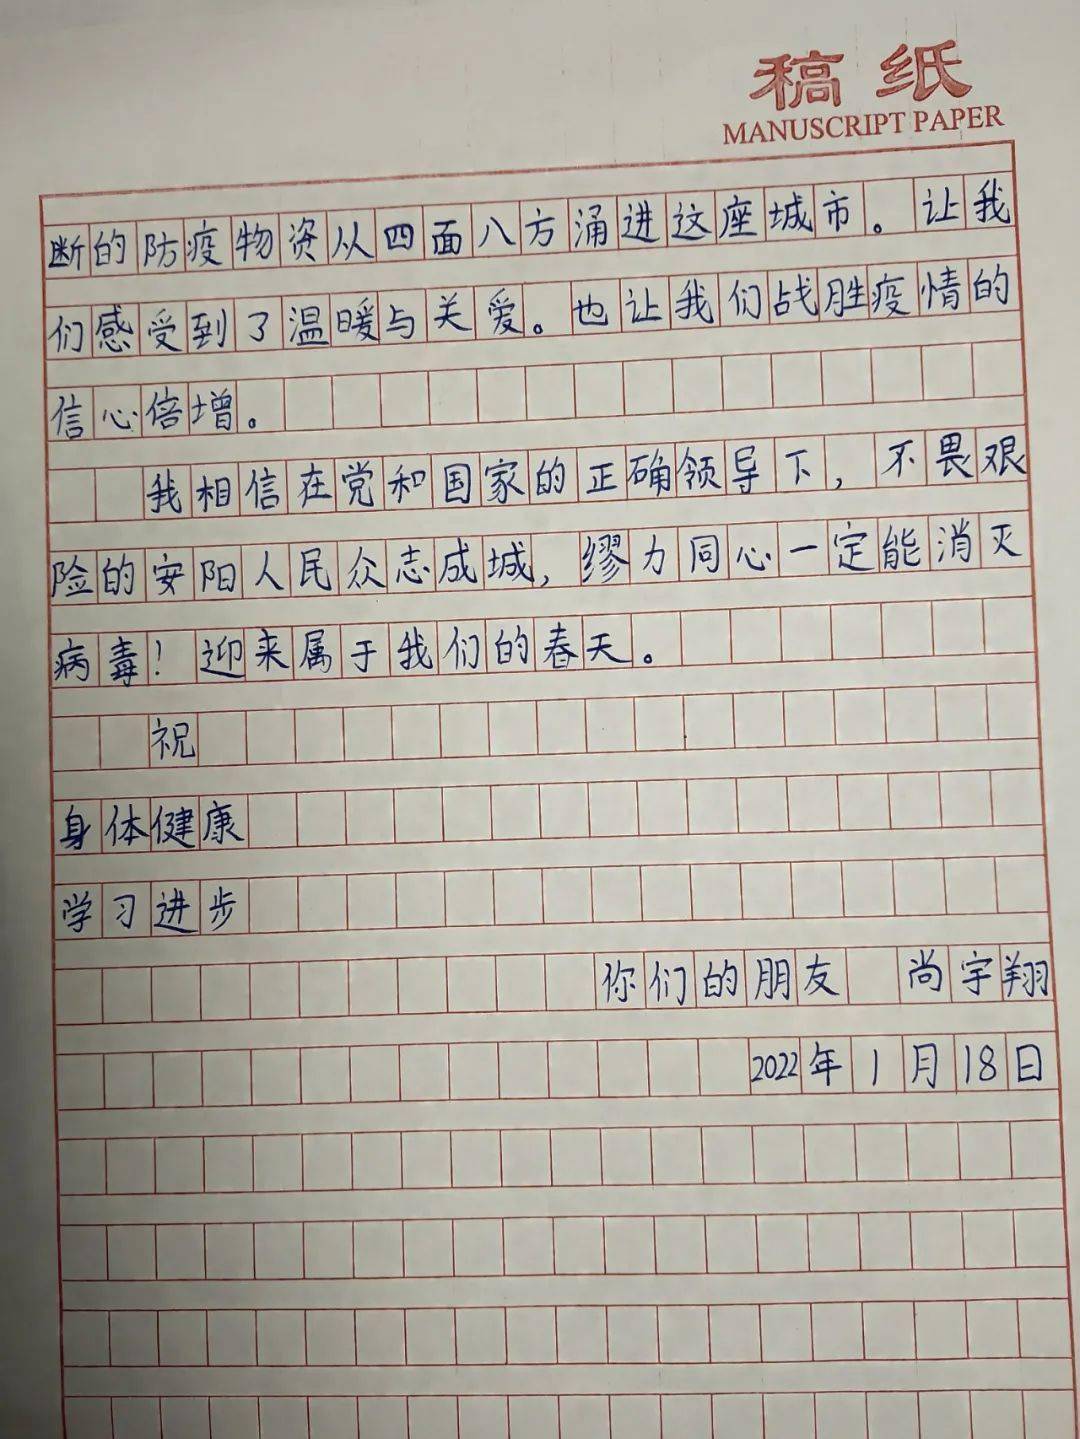 稿纸
MANUSCRIPT PAPER
断的防疫物资从四面八方涌进这座城市。让我
们感受到了温暖与关爱。也让我们战胜疫情的
信心倍增。
我相信在党和国家的正确领导下，不畏艰
险的安阳人民众志成城，缪力同心一定能消灭
病毒！迎来属于我们的春天。
祝
身体健康
学习进步
你们的朋友 尚宇翔
2022年1月18日